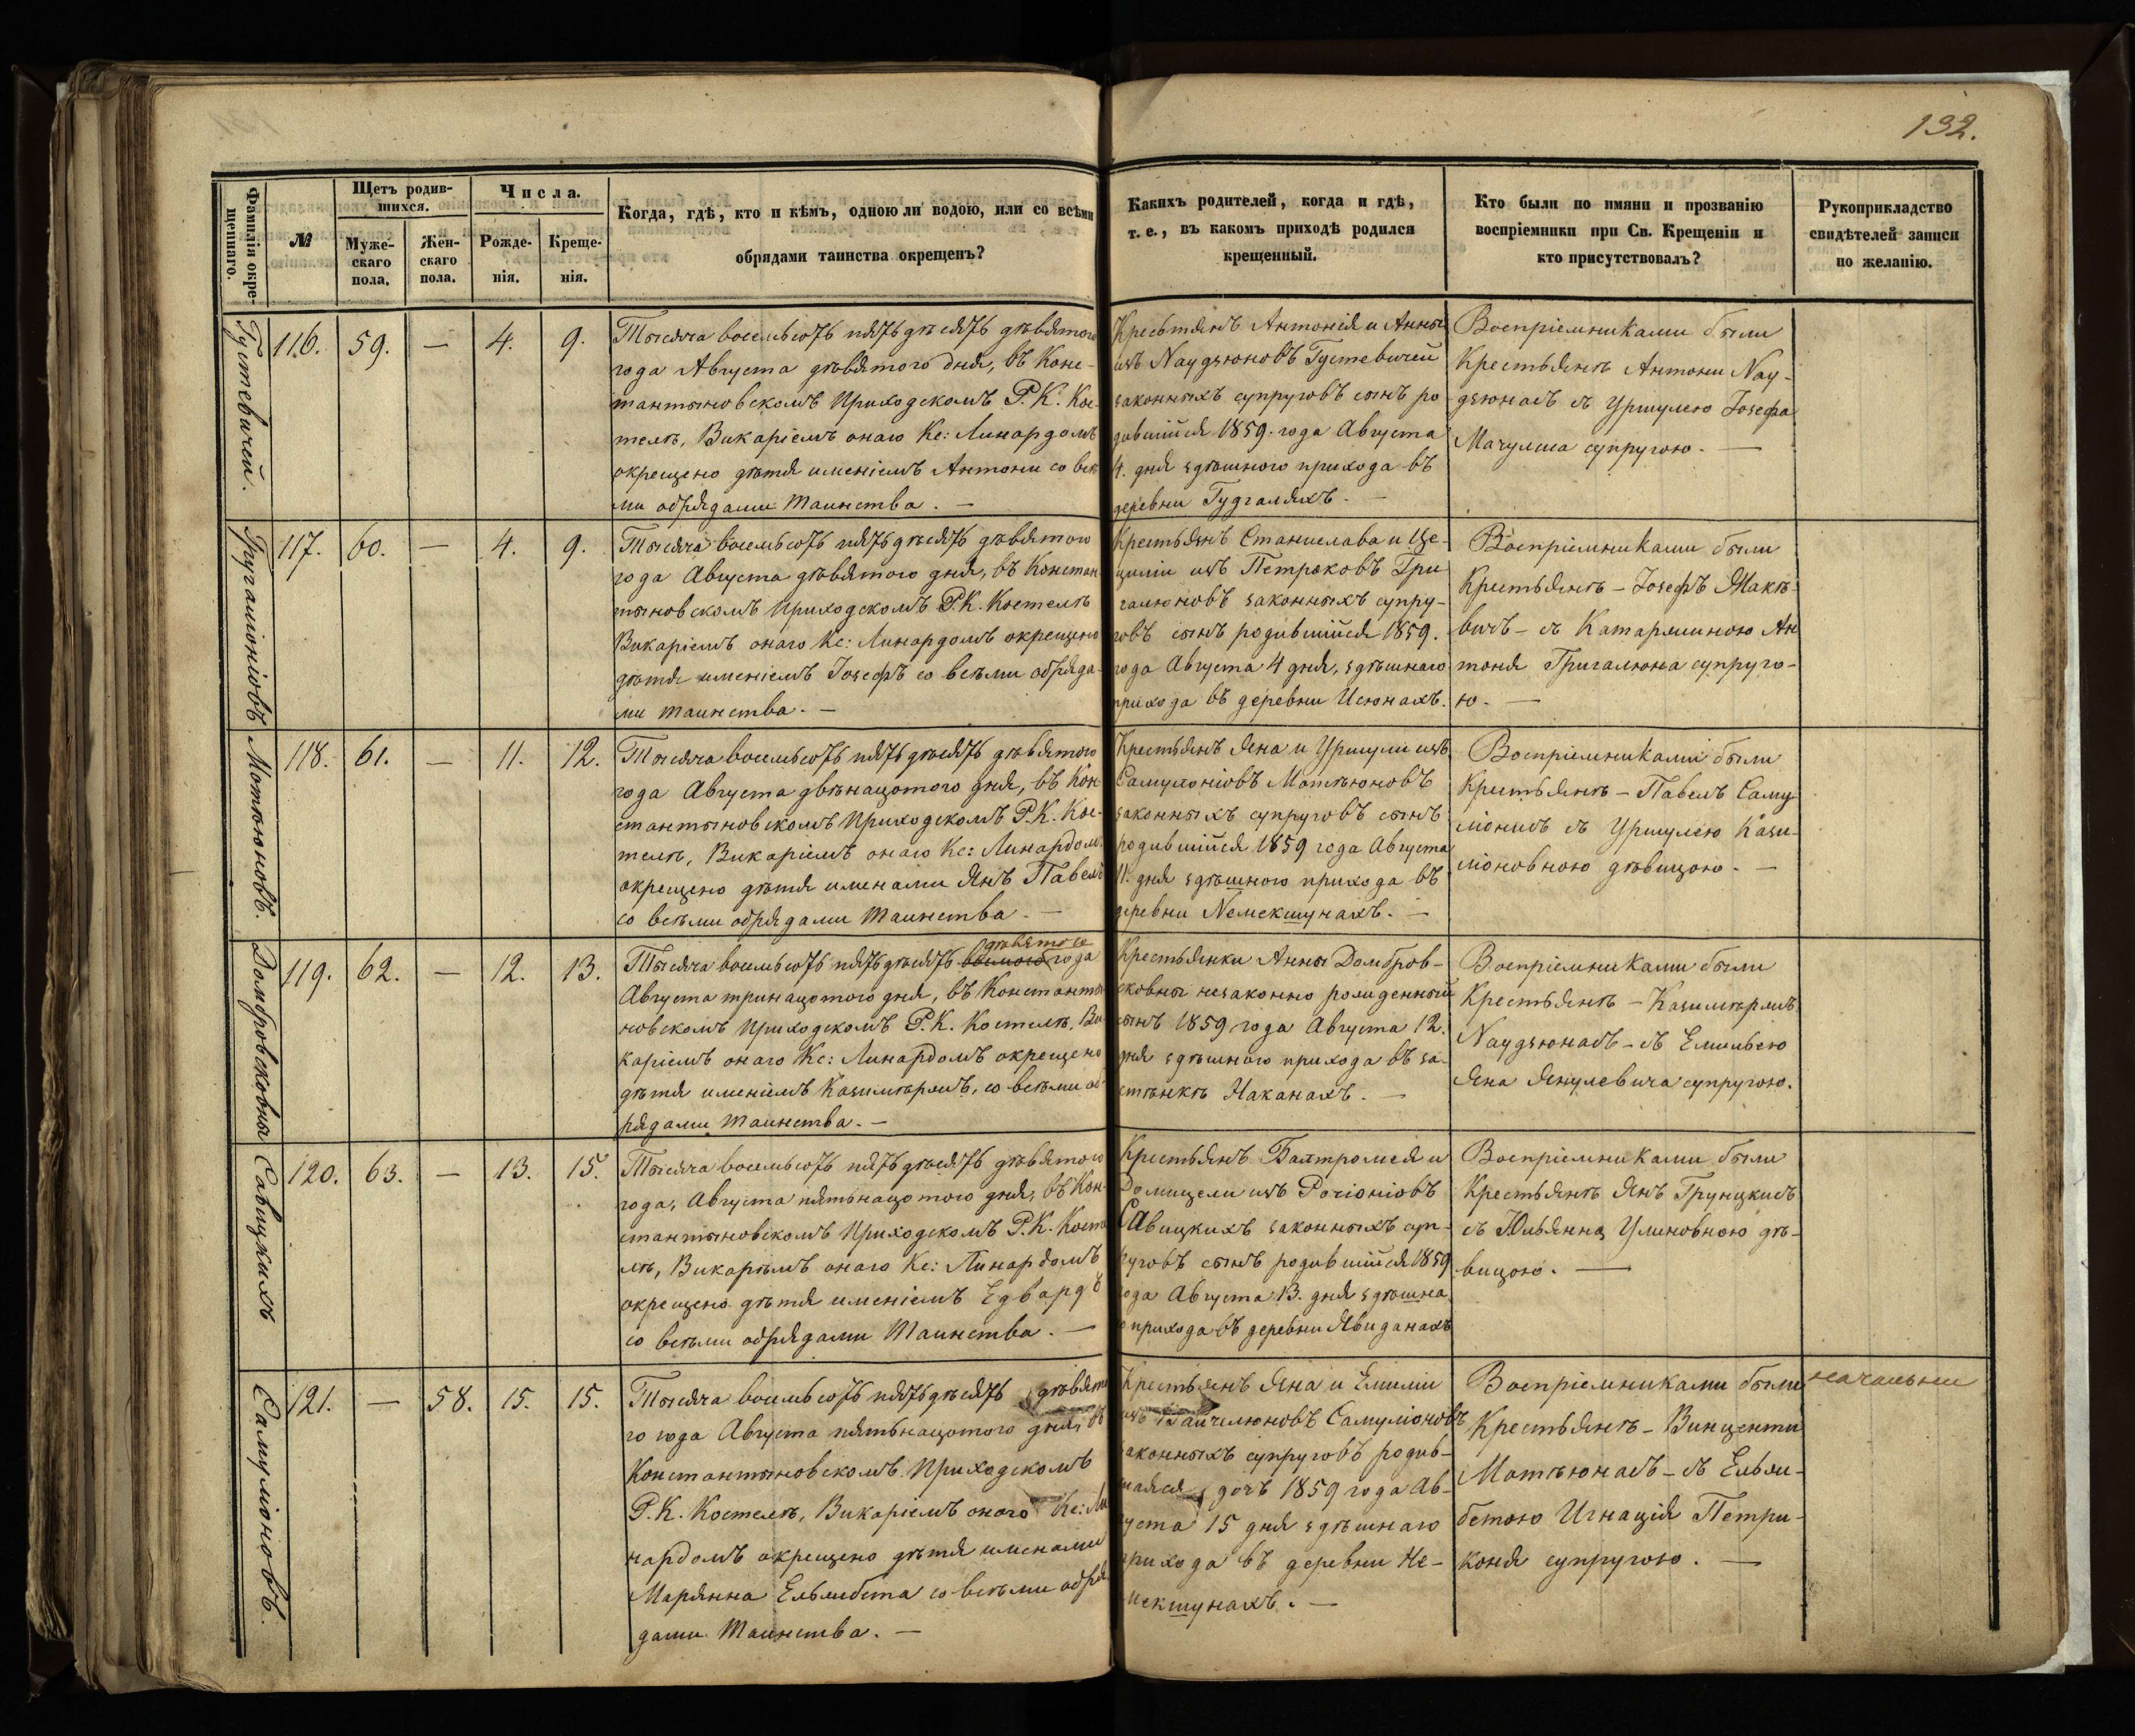 132.
Фамиліи окре-
щеннаго.
№
Щетъ родив-
шихся.
Муже-
скаго
пола.
Жен-
скаго
пола.
Числа.
Рожде-
нія.
Креще-
нія.
Когда, гдѣ, кто и кѣмъ, одною ли водою, или со всѣми
обрядами таинства окрещенъ?
Какихъ родителей, когда и гдѣ,
т. е., въ какомъ приходѣ родился
крещенный.
Кто были по имяни и прозванію
воспріемники при Св. Крещеніи и
кто присутствовалъ?
Рукоприкладство
свидѣтелей записи
по желанію.
Густевичей.
116. 59. — 4. 9.
Тысяча восемьсотъ пятьдѣсятъ дѣвятого
года Августа дѣвятого дня, въ Конс-
тантыновскомъ Приходскомъ Р. К. Кос-
телѣ, Викаріемъ онаго Кс: Линардомъ
окрещено дѣтя именіемъ Антони со всѣ
ми обрядами Таинства. —
Крестьянъ Антонія и Анны
изъ Nаудзюновъ Густевичей
законныхъ супруговъ сынъ ро
дившійся 1859. года Августа
4. дня здѣшного прихода въ
деревни Гудгаляхъ. —
Воспріемниками были
Крестьянѣ Антони Nау-
дзюнасъ съ Уршулею Іозефа
Мачулиса супругою. —
Григалюніовъ
117. 60. — 4. 9.
Тысяча восемьсотъ пятьдѣсятъ дѣвятого
года Августа дѣвятого дня, въ Констан
тыновскомъ Приходскомъ Р.К. Костелѣ
Викаріемъ онаго Кс: Линардомъ окрещено
дѣтя именіемъ Іозефъ со всѣми обряда-
ми таинства. —
Крестьянъ Станислава и Це-
циліи изъ Петраковъ Гри
галюновъ законныхъ супру-
говъ сынъ родившійся 1859.
года Августа 4 дня, здѣшнаго
прихода въ деревни Исюнахъ.
Воспріемниками были
Крестьянѣ – Іозефъ Жакѣ-
вичъ – съ Катаржиною Ан
тонія Григалюна супруго-
ю. —
Мотѣюновъ.
118. 61. — 11. 12.
Тысяча восемьсотъ пятьдѣсятъ дѣвятого
года Августа двѣнацотого дня, въ Кон
стантыновскомъ Приходскомъ Р.К. Кос-
телѣ, Викаріемъ онаго Кс: Линардом
окрещено дѣтя именами Янъ Павелъ
со всѣми обрядами Таинства. —
Крестьянъ Яна и Уршули изъ
Самулоніовъ Мотѣюновъ
законныхъ супруговъ сынъ
родившійся 1859 года Августа
11. дня здѣшного прихода въ
деревни Nемекшунахъ. —
Воспріемниками были
Крестьянѣ – Павелъ Саму
ліонисъ съ Уршулею Кази-
ліоновною дѣвицою. —
Домбровсковны
119. 62. — 12. 13.
дѣвятого
Тысяча восемьсотъ пятьдѣсятъ восмого года
Августа тринацотого дня, въ Константы
новскомъ Приходскомъ Р.К. Костелѣ, Ви
каріемъ онаго Кс: Линардомъ окрещено
дѣтя именіемъ Казимѣржъ, со всѣми об-
рядами Таинства. —
Крестьянки Анны Домбров-
сковны незаконно рожденный
сынъ 1859 года Августа 12.
дня здѣшного прихода въ за-
стѣнкѣ Наканахъ. —
Воспріемниками были
Крестьянѣ – Казимѣржъ
Nаудзюнасъ – съ Емильею
Яна Янулевича супругою.
Савицкихъ
120. 63. — 13. 15.
Тысяча восемьсотъ пятьдѣсятъ дѣвятого
года, Августа пятьнацотого дня, въ Кон
стантыновскомъ Приходскомъ Р.К. Косте
лѣ, Викаріемъ онаго Кс: Линардомъ
окрещено дѣтя именіемъ Едвардъ
со всѣми обрядами Таинства. —
Крестьянъ Балтромея и
Домицели изъ Рочіоніовъ
Савицкихъ законныхъ суп-
руговъ сынъ родившійся 1859
года Августа 13. дня здѣшна
прихода въ деревни Явиданахъ
Воспріемниками были
Крестьянѣ Янъ Груицкисъ
съ Юльянна Улиновною дѣ-
вицою. —
Самуліоновъ.
121. — 58. 15. 15.
Тысяча восемьсотъ пятьдѣсятъ дѣвято
го года Августа пятьнацотого дня, въ
Константыновскомъ Приходскомъ
Р.К. Костелѣ, Викаріемъ онаго Кс: Ли
нардомъ окрещено дѣтя именами
Марянна Ельжбета со всѣми обря
дами Таинства. —
Крестьянъ Яна и Емиліи
изъ Вайчелюновъ Самуліоновъ
законныхъ супруговъ родив-
шаяся дочъ 1859 года Ав-
густа 15 дня здѣшнаго
прихода въ деревни Не-
мекшунахъ. —
Воспріемниками были
Крестьянѣ – Винценти
Мотѣюнасъ – съ Ельжи-
бетою Игнація Петри-
коня супругою. —